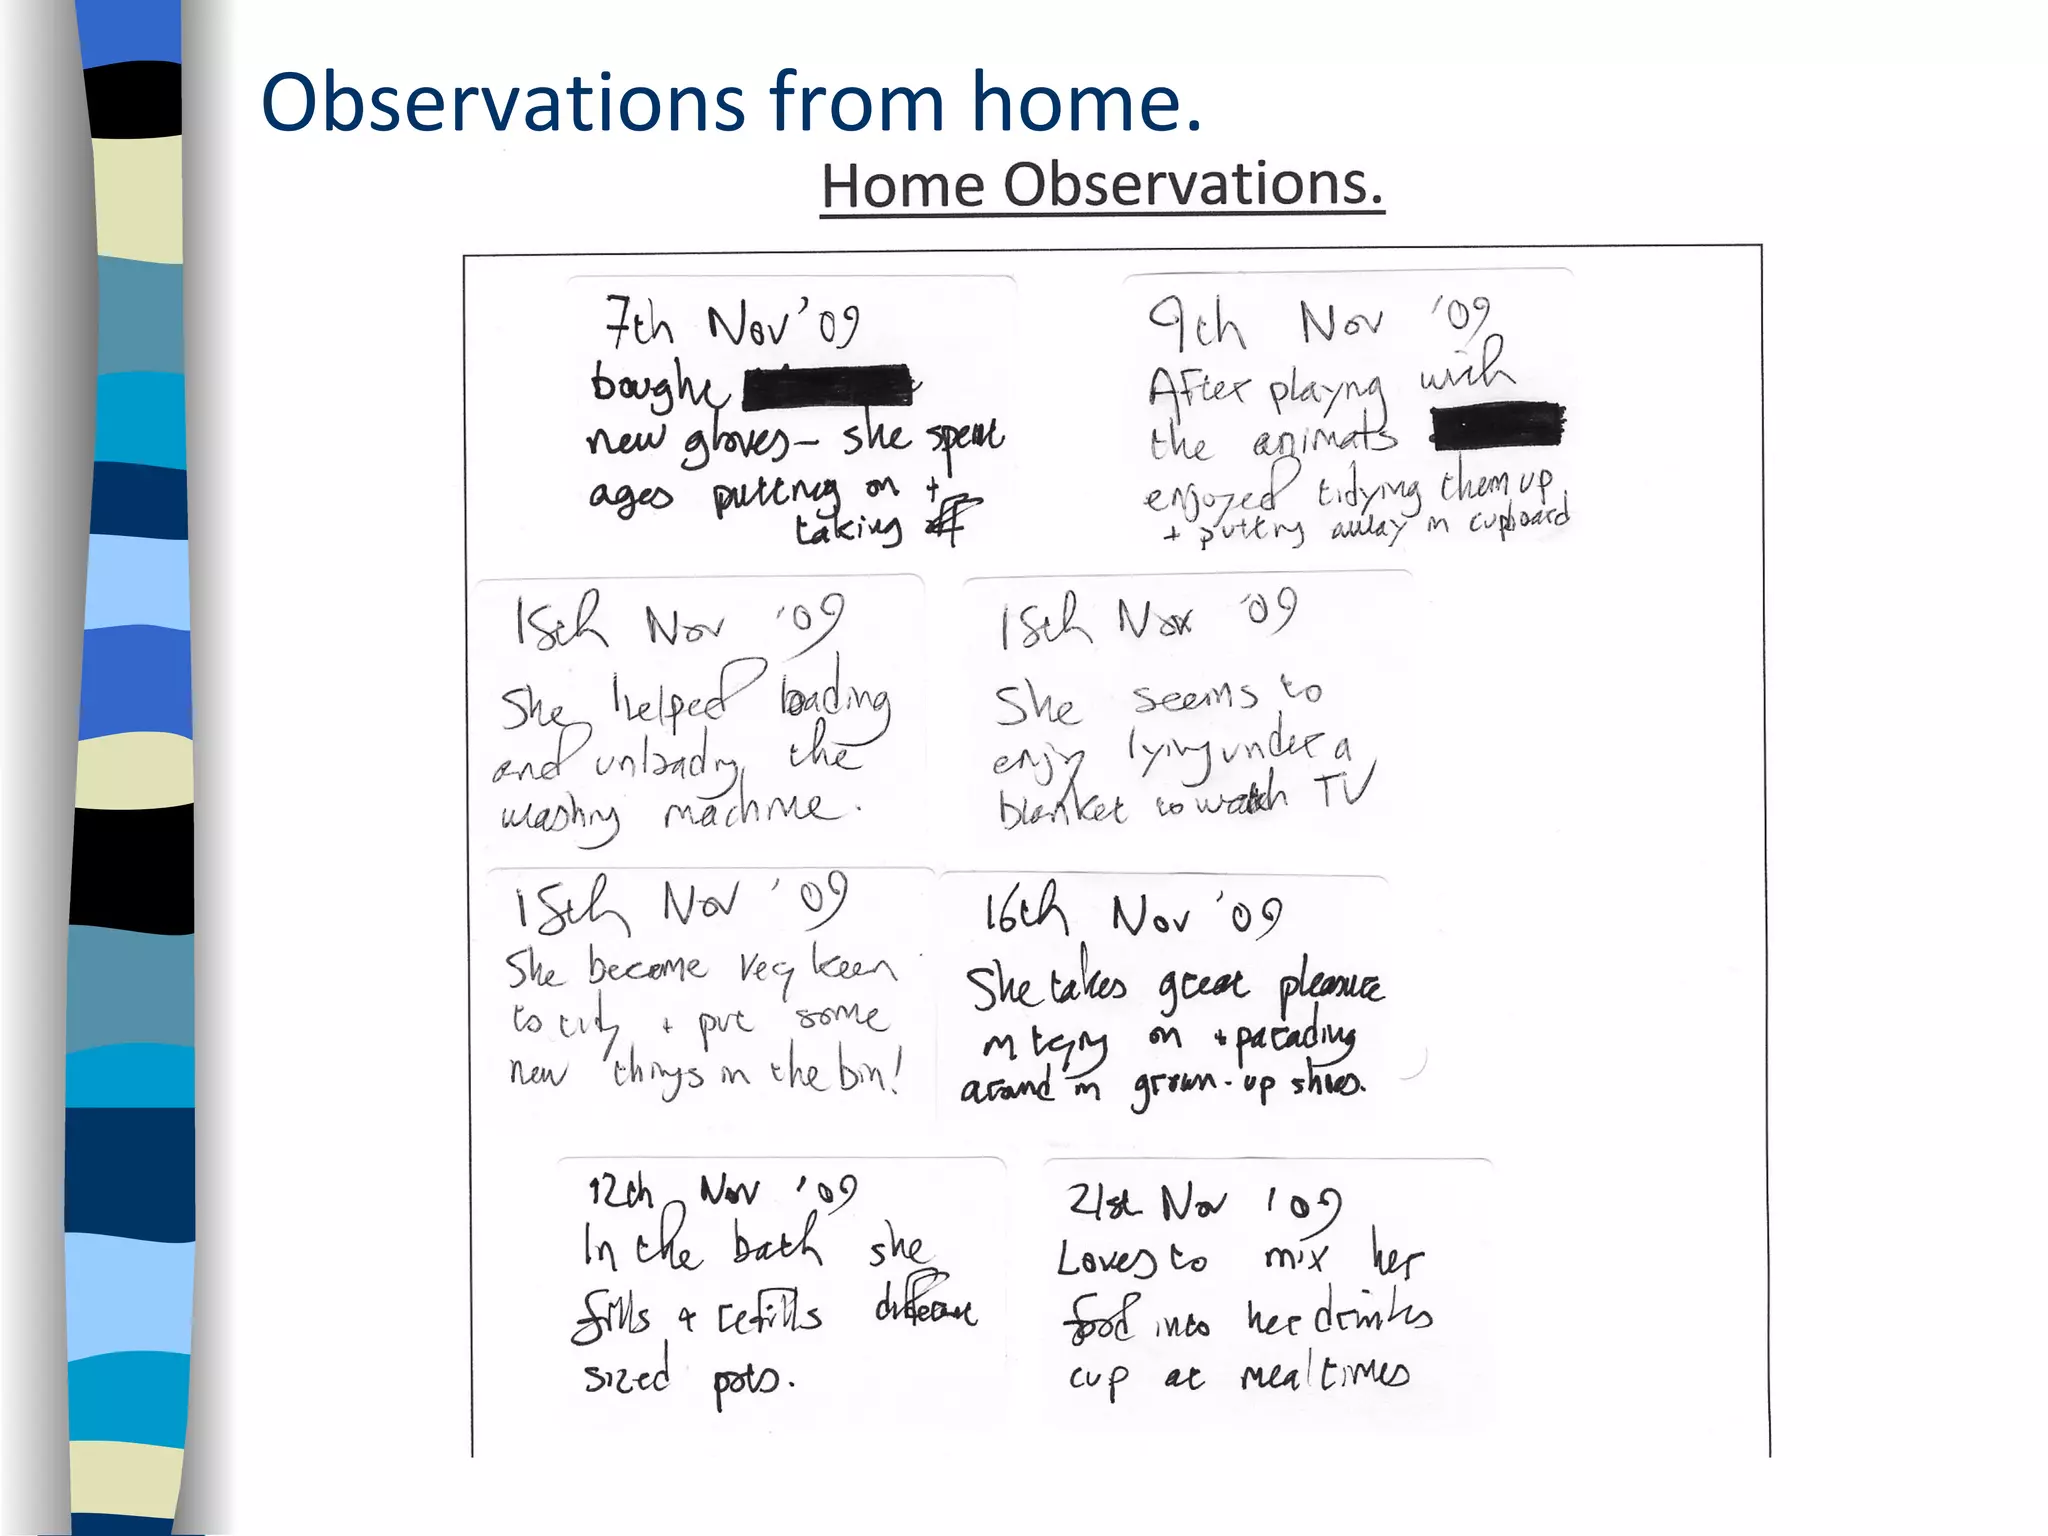 Observations from home.
Home Observations.
7th Nov '09
bought
new gloves – she spent
ages putting on +
taking off
9th Nov '09
After playing with
the animals
enjoyed tidying them up
+ putting away in cupboard
15th Nov '09
She helped loading
and unloading the
washing machine.
15th Nov '09
She seems to
enjoy lying under a
blanket to watch TV
15th Nov '09
She become very keen
to tidy + put some
new things in the bin!
16th Nov '09
She takes great pleasure
in trying on + parading
around in grown-up shoes.
12th Nov '09
In the bath she
fills + refills different
sized pots.
21st Nov '09
Loves to mix her
food into her drinks
cup at mealtimes